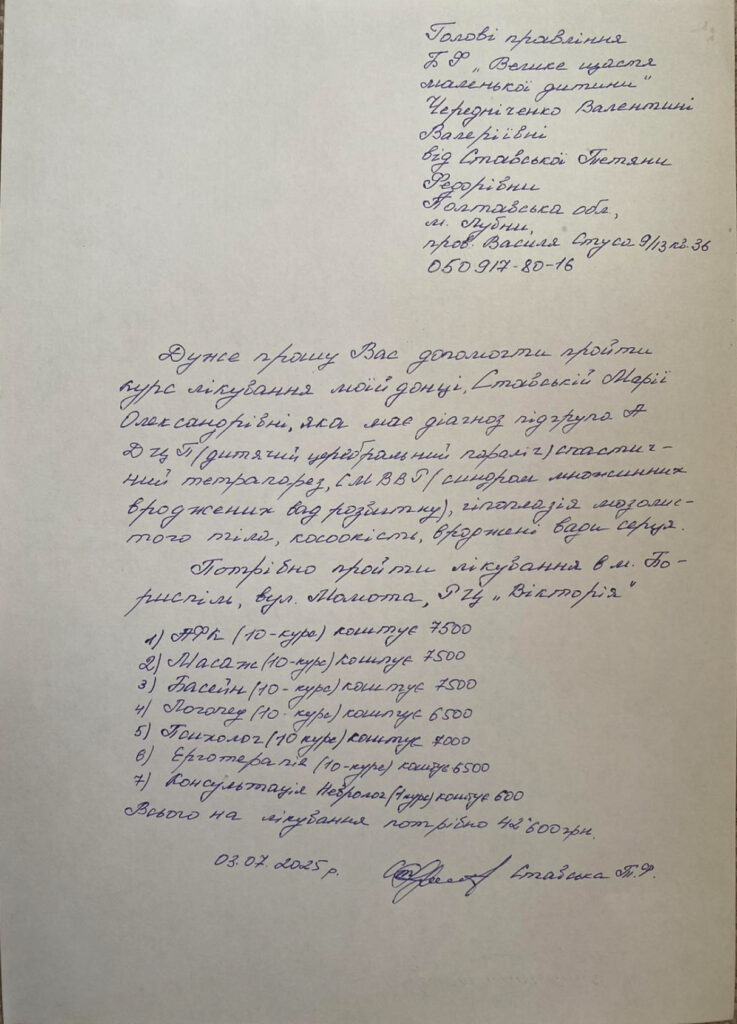 Голові правління
БФ „Велике щастя
маленької дитини"
Чередніченко Валентині
Валеріївні
від Ставської Тетяни
Федорівни
Полтавська обл.,
м. Лубни,
пров. Василя Стуса 9/13 кв. 36
050 917-80-16
Дуже прошу Вас допомогти пройти
курс лікування моїй донці, Ставській Марії
Олександрівні, яка має діагноз підгрупа А
ДЦП (дитячий церебральний параліч) спастич-
ний тетрапарез, СМВВР (синдром множинних
вроджених вад розвитку), гіпоплазія мозолис-
того тіла, косоокість, вроджені вади серця.
Потрібно пройти лікування в м. Бо-
риспіль, вул. Момота, РЦ „Вікторія"
1) АФК (10-курс) коштує 7500
2) Масаж (10-курс) коштує 7500
3) Басейн (10-курс) коштує 7500
4) Логопед (10-курс) коштує 6500
5) Психолог (10 курс) коштує 7000
6) Ерготерапія (10-курс) коштує 6500
7) Консультація Невролог (1 курс) коштує 600
Всього на лікування потрібно 42'600 грн.
03.07.2025 р. Ставська Т.Ф.